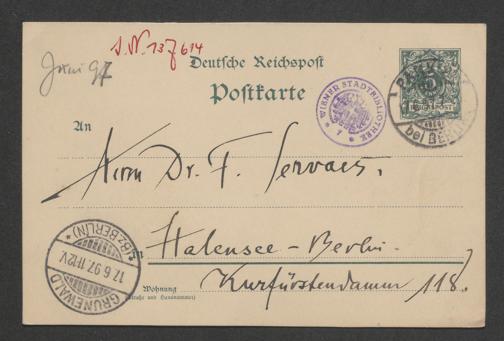 J.N. 137614
Juni 97
Deutsche Reichspost
Postkarte
WIENER STADTBIBLIOTHEK
5
REICHSPOST
bei BERLIN
An
Herrn Dr. F. Servaes.
Halensee-Berlin.
Kurfürstendamm 118.
Wohnung
(Straße und Hausnummer)
GRUNEWALD
17.6.97. 11-12V.
*(BZ. BERLIN)*